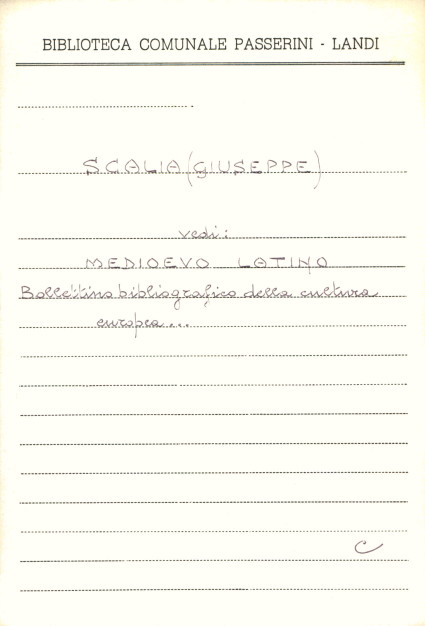 BIBLIOTECA COMUNALE PASSERINI - LANDI
SCALIA (GIUSEPPE)
vedi:
MEDIOEVO LATINO
Bollettino bibliografico della cultura
europea...
C